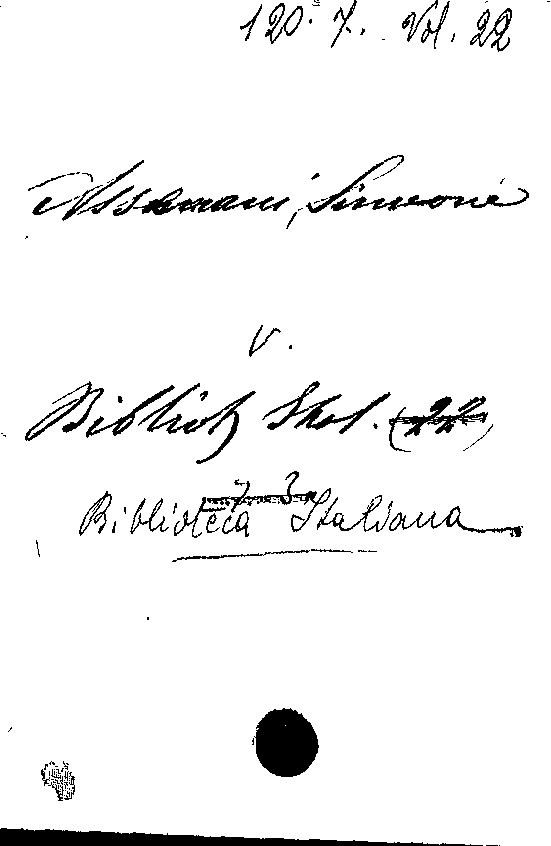 120. 7. Vol. 22
Assemani, Simone
v.
Biblioth Ital. (22)
7 3
Biblioteca Italiana